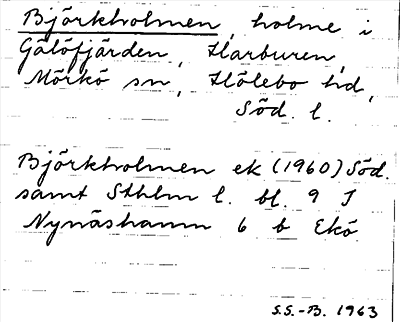 Björkholmen, holme i
Gälöfjärden, Harburen,
Mörkö sn, Hölebo hd,
Söd. l.
Björkholmen ek (1960) Söd.
samt Sthlm l. bl. 9 I
Nynäshamn 6 b Ekö
S.S.-B. 1963